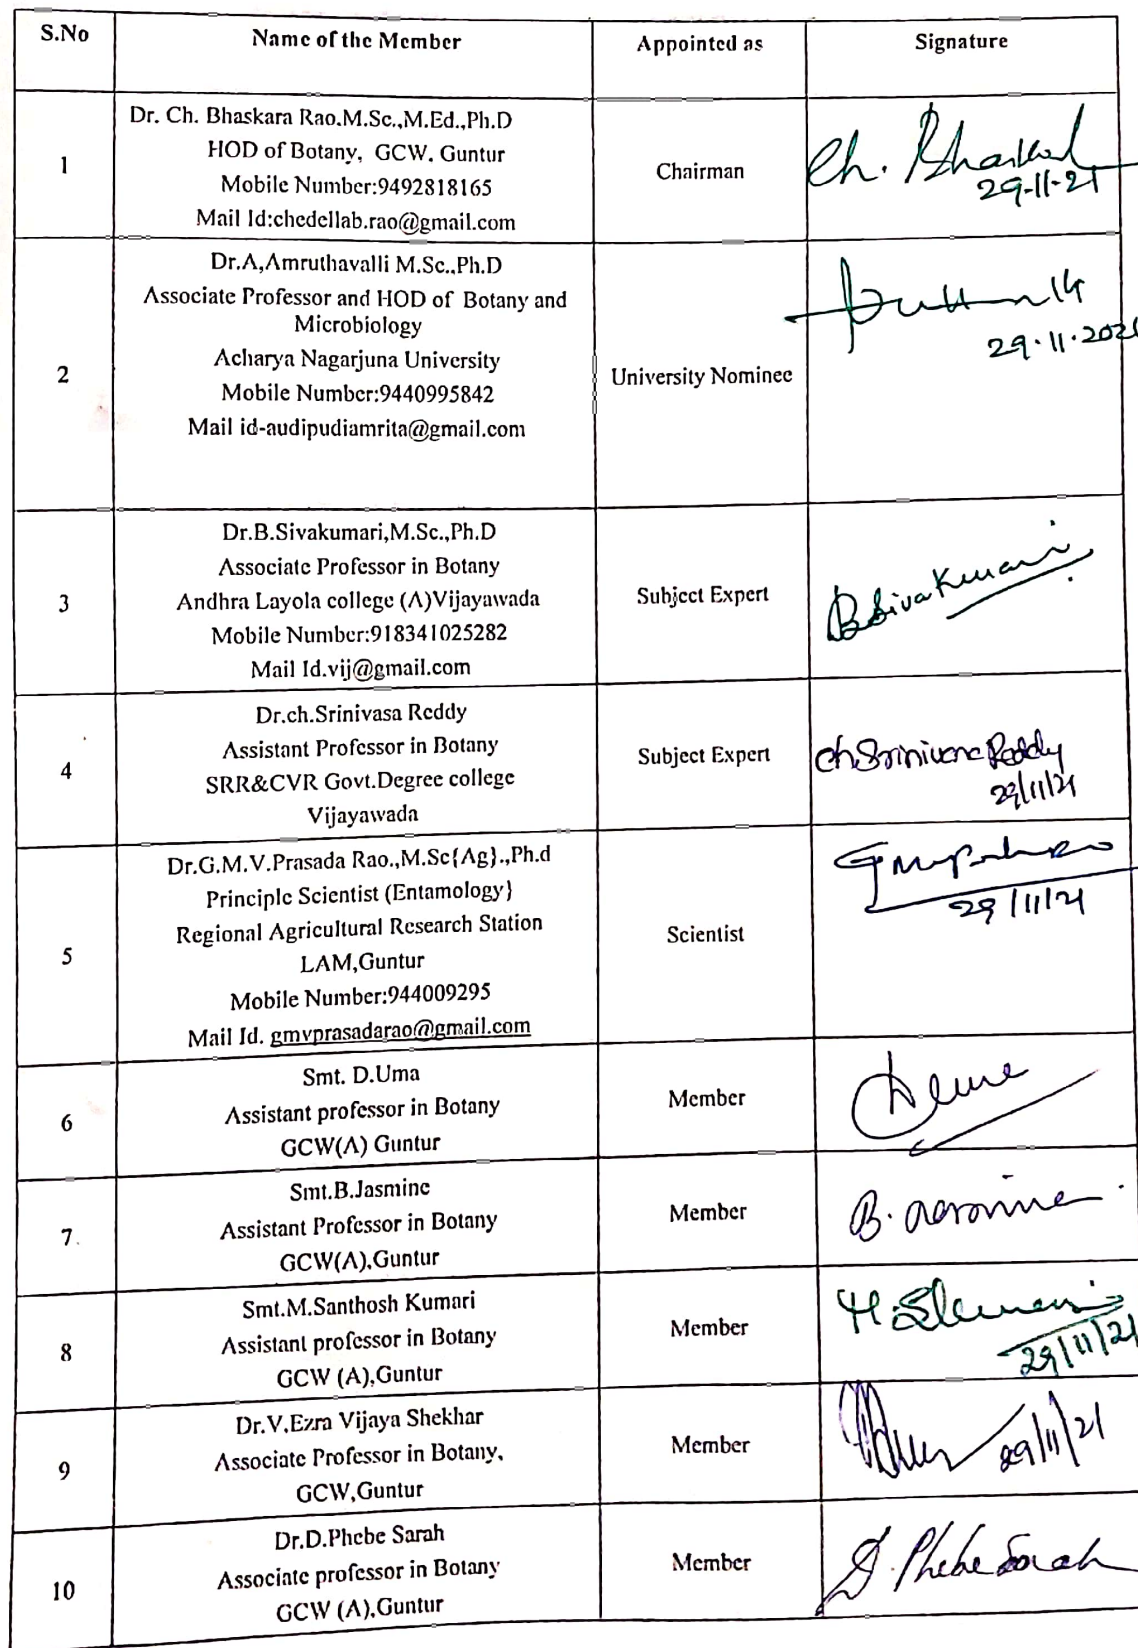 S.No Name of the Member Appointed as Signature
1
Dr. Ch. Bhaskara Rao.M.Sc.,M.Ed.,Ph.D
HOD of Botany, GCW. Guntur
Mobile Number:9492818165
Mail Id:chedellab.rao@gmail.com
Chairman
Ch. Bhaskar
29-11-21
2
Dr.A,Amruthavalli M.Sc.,Ph.D
Associate Professor and HOD of Botany and
Microbiology
Acharya Nagarjuna University
Mobile Number:9440995842
Mail id-audipudiamrita@gmail.com
University Nominee
29.11.2021
3
Dr.B.Sivakumari,M.Sc.,Ph.D
Associate Professor in Botany
Andhra Layola college (A)Vijayawada
Mobile Number:918341025282
Mail Id.vij@gmail.com
Subject Expert
B Siva Kumari
4
Dr.ch.Srinivasa Reddy
Assistant Professor in Botany
SRR&CVR Govt.Degree college
Vijayawada
Subject Expert
Ch. Srinivasa Reddy
29/11/21
5
Dr.G.M.V.Prasada Rao.,M.Sc{Ag}.,Ph.d
Principle Scientist (Entamology}
Regional Agricultural Research Station
LAM,Guntur
Mobile Number:944009295
Mail Id. gmvprasadarao@gmail.com
Scientist
29/11/21
6
Smt. D.Uma
Assistant professor in Botany
GCW(A) Guntur
Member
7.
Smt.B.Jasmine
Assistant Professor in Botany
GCW(A),Guntur
Member
B.
8
Smt.M.Santhosh Kumari
Assistant professor in Botany
GCW (A),Guntur
Member
29/11/21
9
Dr.V.Ezra Vijaya Shekhar
Associate Professor in Botany,
GCW,Guntur
Member
29/11/21
10
Dr.D.Phebe Sarah
Associate professor in Botany
GCW (A),Guntur
Member
D. Phebe Sarah